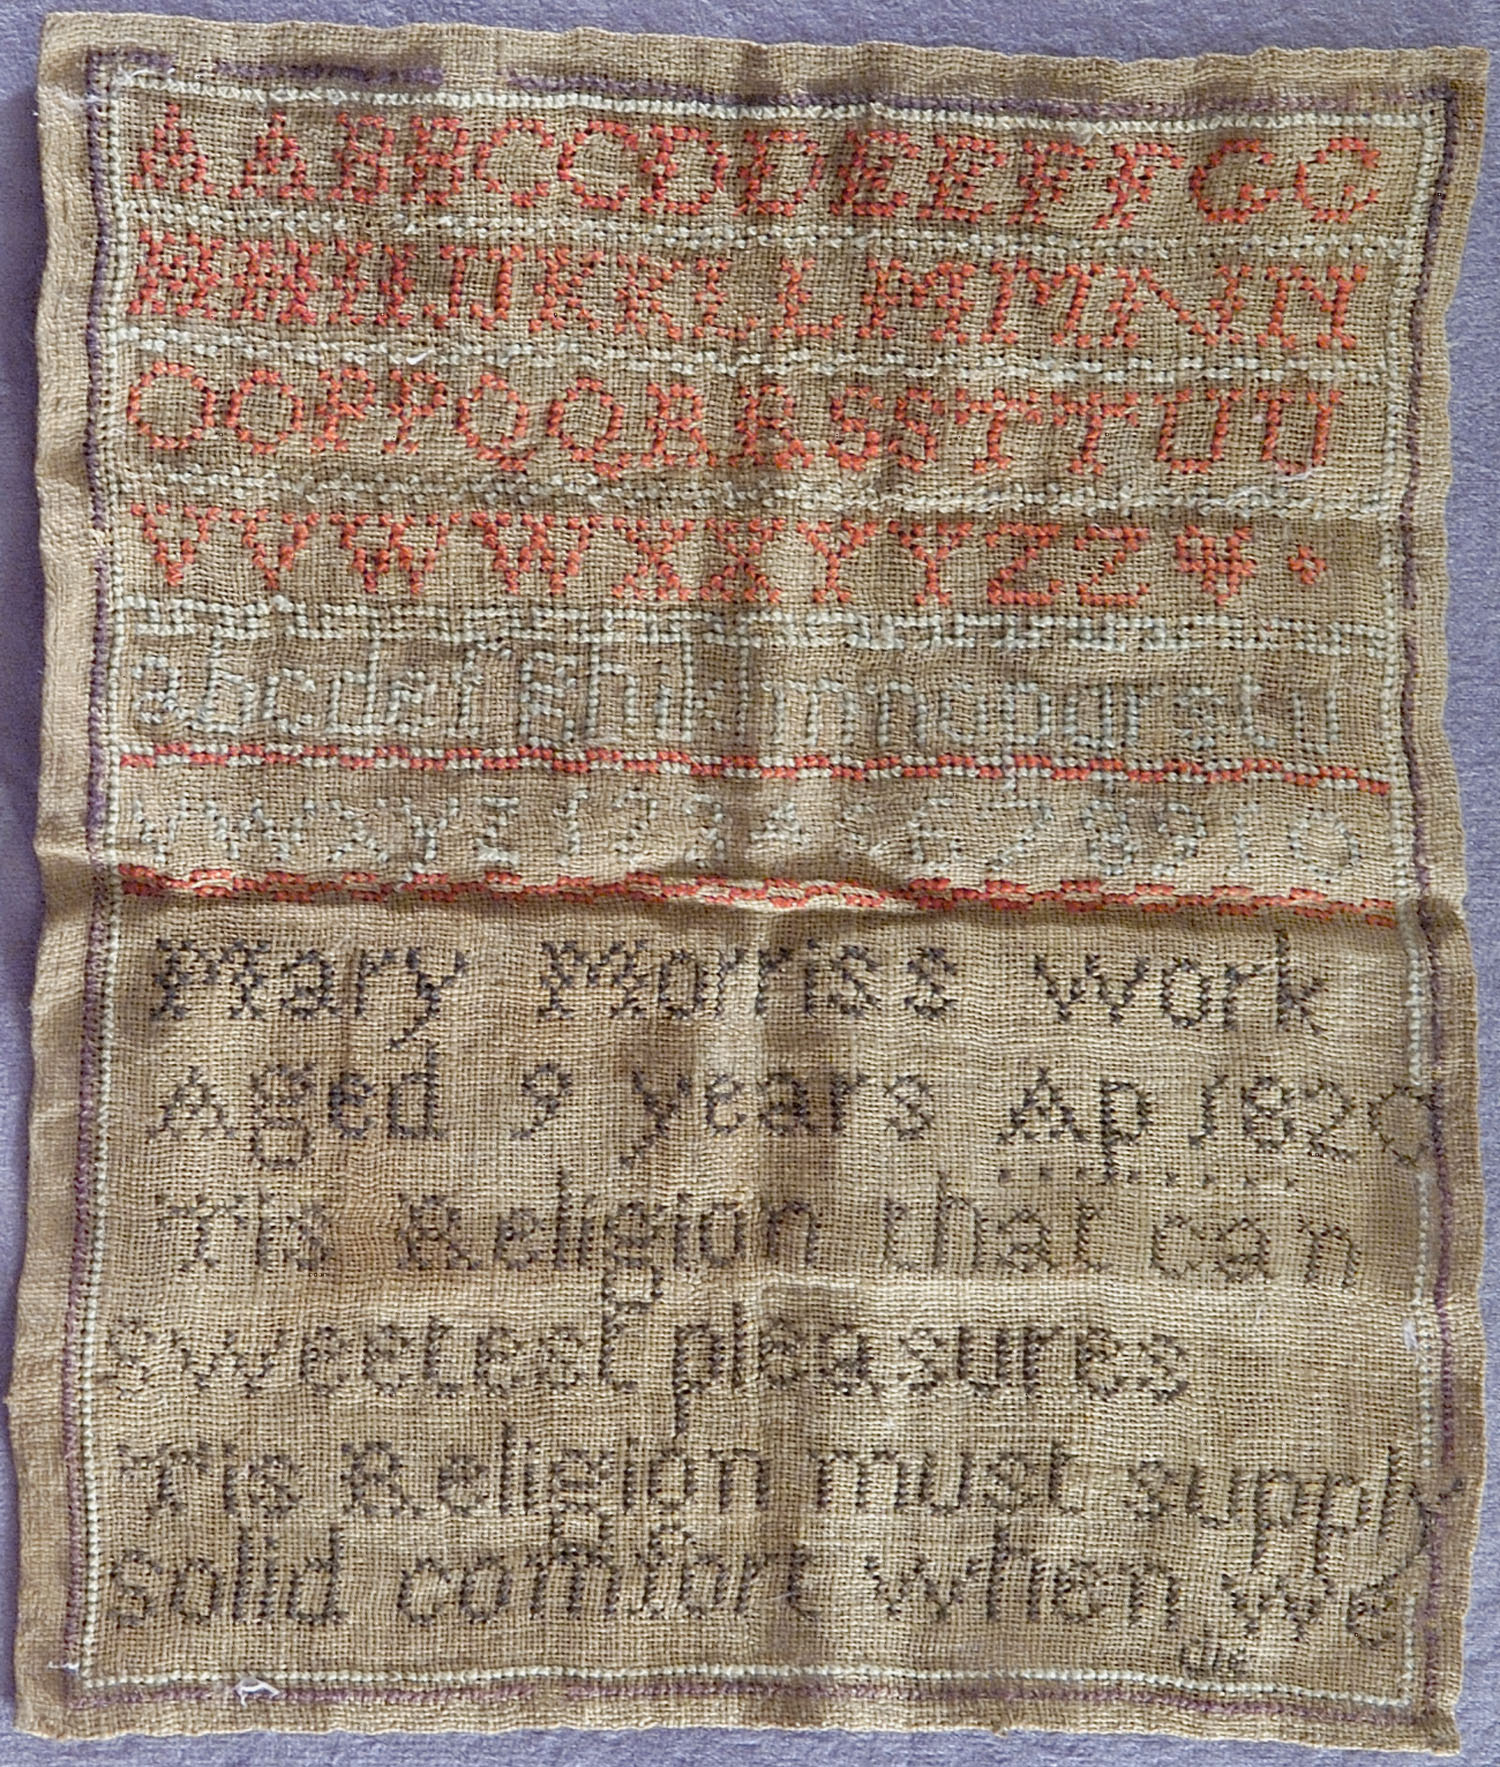 AABBCCDDEEFFGG
HHIIJJKKLLMMNN
OOPPQQRRSSTTUU
VVWWXXYYZZ
abcdefghiklmnopqrstu
vwxyz12345678910
Mary Morriss work
Aged 9 years Ap 1820
Tis Religion that can
sweetest pleasures
Tis Religion must supply
solid comfort when we
die